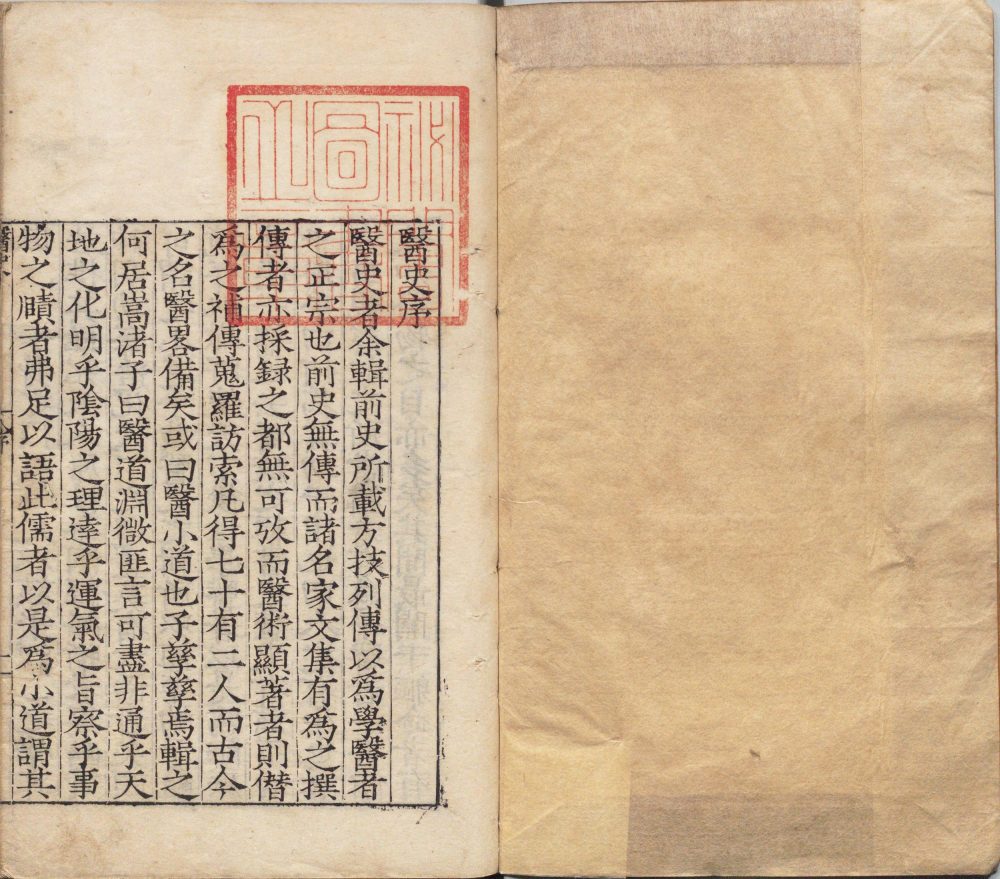 醫史序
醫史者余輯前史所載方技列傳以爲學醫者
之正宗也前史無傳而諸名家文集有爲之撰
傳者亦採録之都無可攷而醫術顯著者則僣
爲之補傳蒐羅訪索凢得七十有二人而古今
之名醫畧備矣或曰醫小道也子孳孳焉輯之
何居嵩渚子曰醫道淵微匪言可盡非通乎天
地之化明乎陰陽之理達乎運氣之旨察乎事
物之賾者弗足以語此儒者以是爲小道謂其
醫史